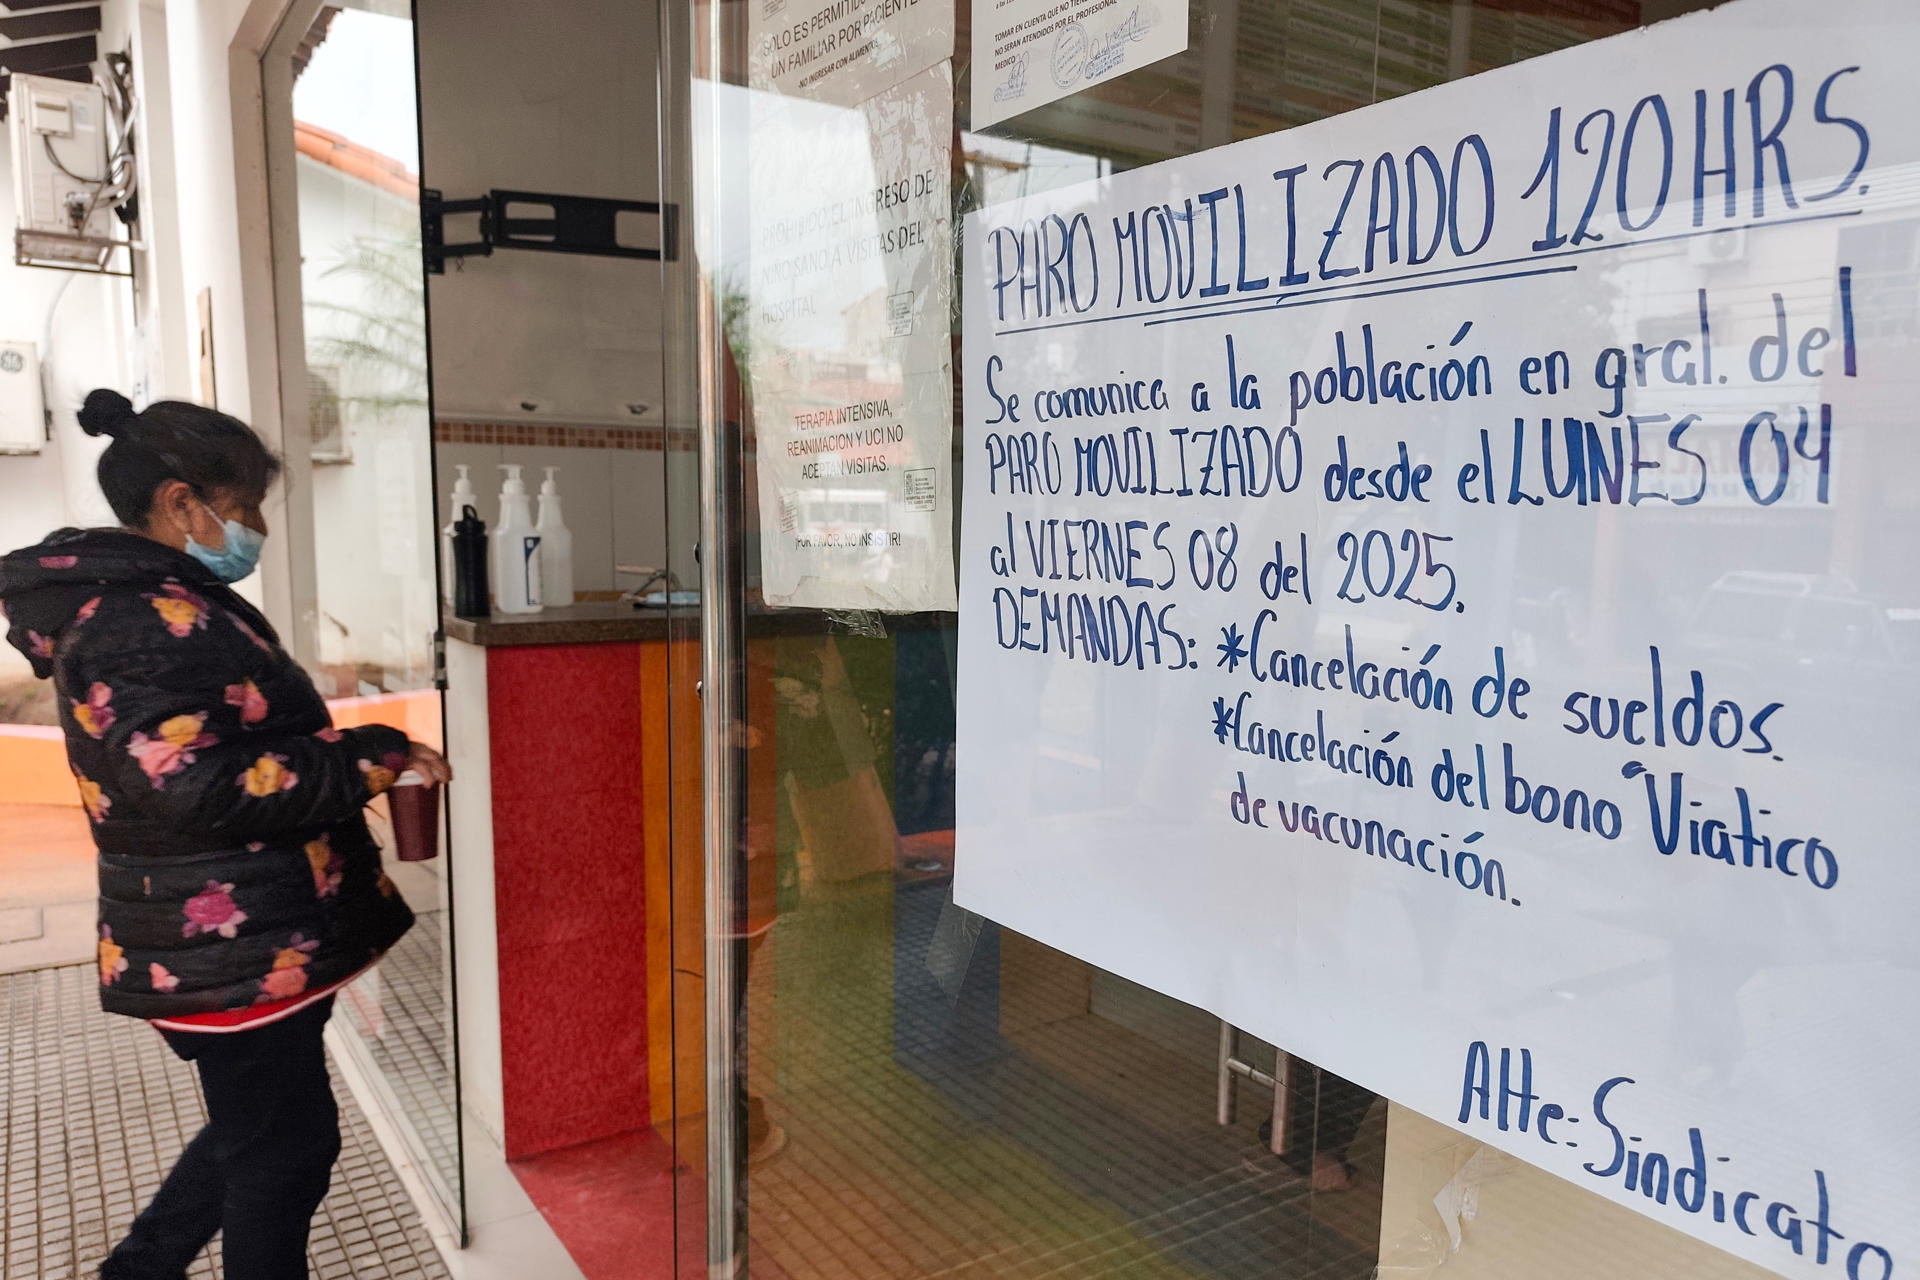 SOLO ES PERMITIDO
UN FAMILIAR POR PACIENTE
-NO INGRESAR CON ALIMENTOS-
PROHIBIDO EL INGRESO DE
NIÑO SANO A VISITAS DEL
HOSPITAL
TERAPIA INTENSIVA,
REANIMACION Y UCI NO
ACEPTAN VISITAS.
¡POR FAVOR, NO INSISTIR!
TOMAR EN CUENTA QUE NO
NO SERAN ATENDIDOS POR EL PROFESIONAL
MEDICO
PARO MOVILIZADO 120HRS.
Se comunica a la población en gral. del
PARO MOVILIZADO desde el LUNES 04
al VIERNES 08 del 2025.
DEMANDAS: *Cancelación de sueldos.
*Cancelación del bono "Viatico
de vacunación.
Atte: Sindicato